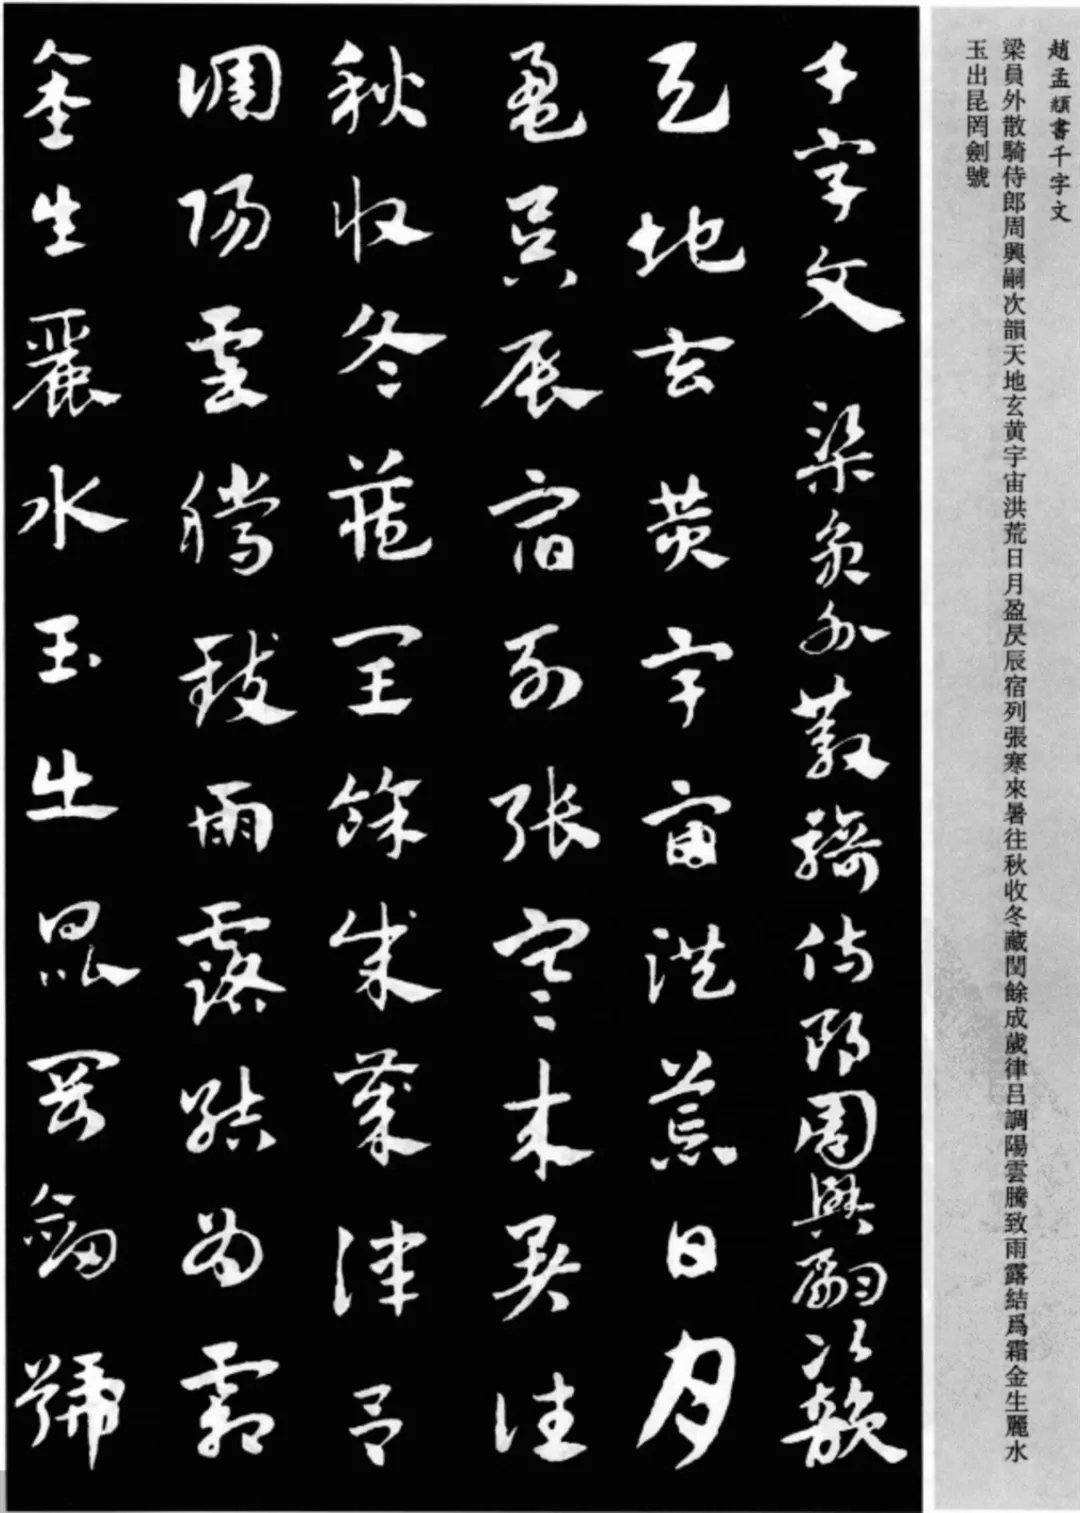 趙孟頫書千字文
梁員外散騎侍郎周興嗣次韻天地玄黄宇宙洪荒日月盈昃辰宿列張寒來暑往秋收冬藏閏餘成歲律吕調陽雲騰致雨露結爲霜金生麗水
玉出昆罔劍號
千字文 梁員外散騎侍郎周興嗣次韻
天地玄黄宇宙洪荒日月
盈昃辰宿列張寒来暑往
秋收冬藏閏餘成歲律吕
調陽雲騰致雨露結為霜
金生麗水玉出崐罡劒號